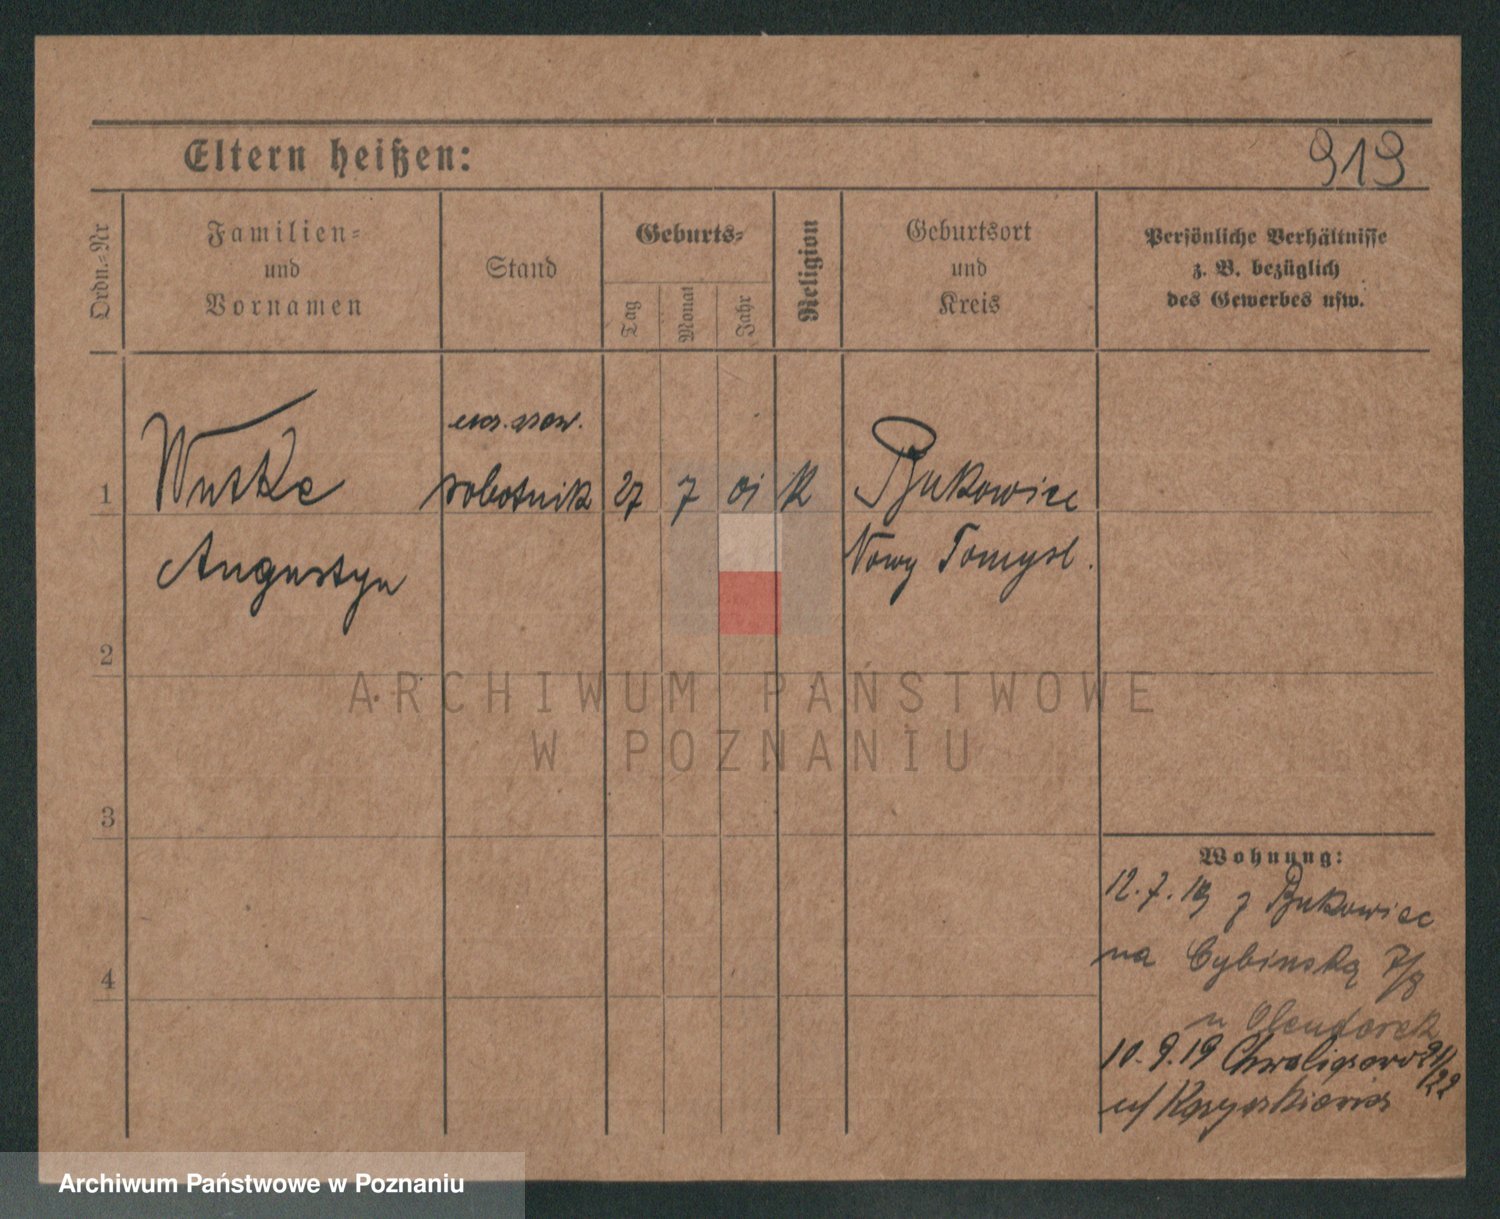 Eltern heißen:
919
Ordn.-Nr
Familien-
und
Vornamen
Stand
Geburts-
Tag
Monat
Jahr
Religion
Geburtsort
und
Kreis
Persönliche Verhältnisse
z. B. bezüglich
des Gewerbes usw.
1
Wutke
robotnik
27
7
01
K
Bukowiec
Augustyn
Nowy Tomysl.
2
3
4
ARCHIWUM PAŃSTWOWE
W POZNANIU
Wohnung:
12.7.19 z Bukowiec
na Cybinską 7/8
u Olendarek
10.9.19
Archiwum Państwowe w Poznaniu